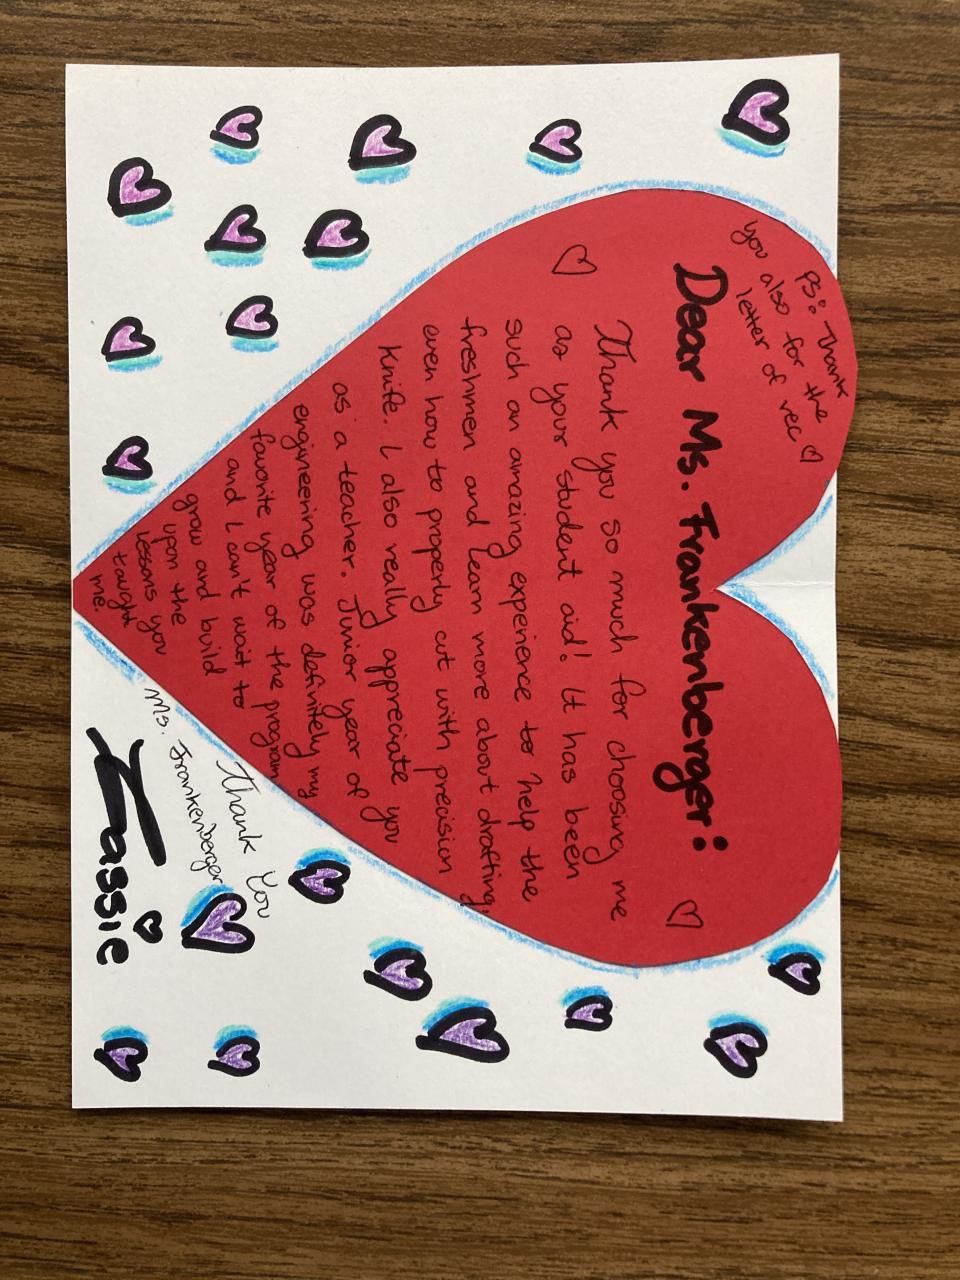 PS: Thank
you also for the
letter of rec ♡
Dear Ms. Frankenberger:
Thank you so much for choosing me
as your student aid! It has been
such an amazing experience to help the
freshmen and learn more about drafting,
even how to properly cut with precision
knife. I also really appreciate you
as a teacher. Junior year of
engineering was definitely my
favorite year of the program
and I can't wait to
grow and build
upon the
lessons you
taught
me.
Thank You
Ms. Frankenberger
Kassie